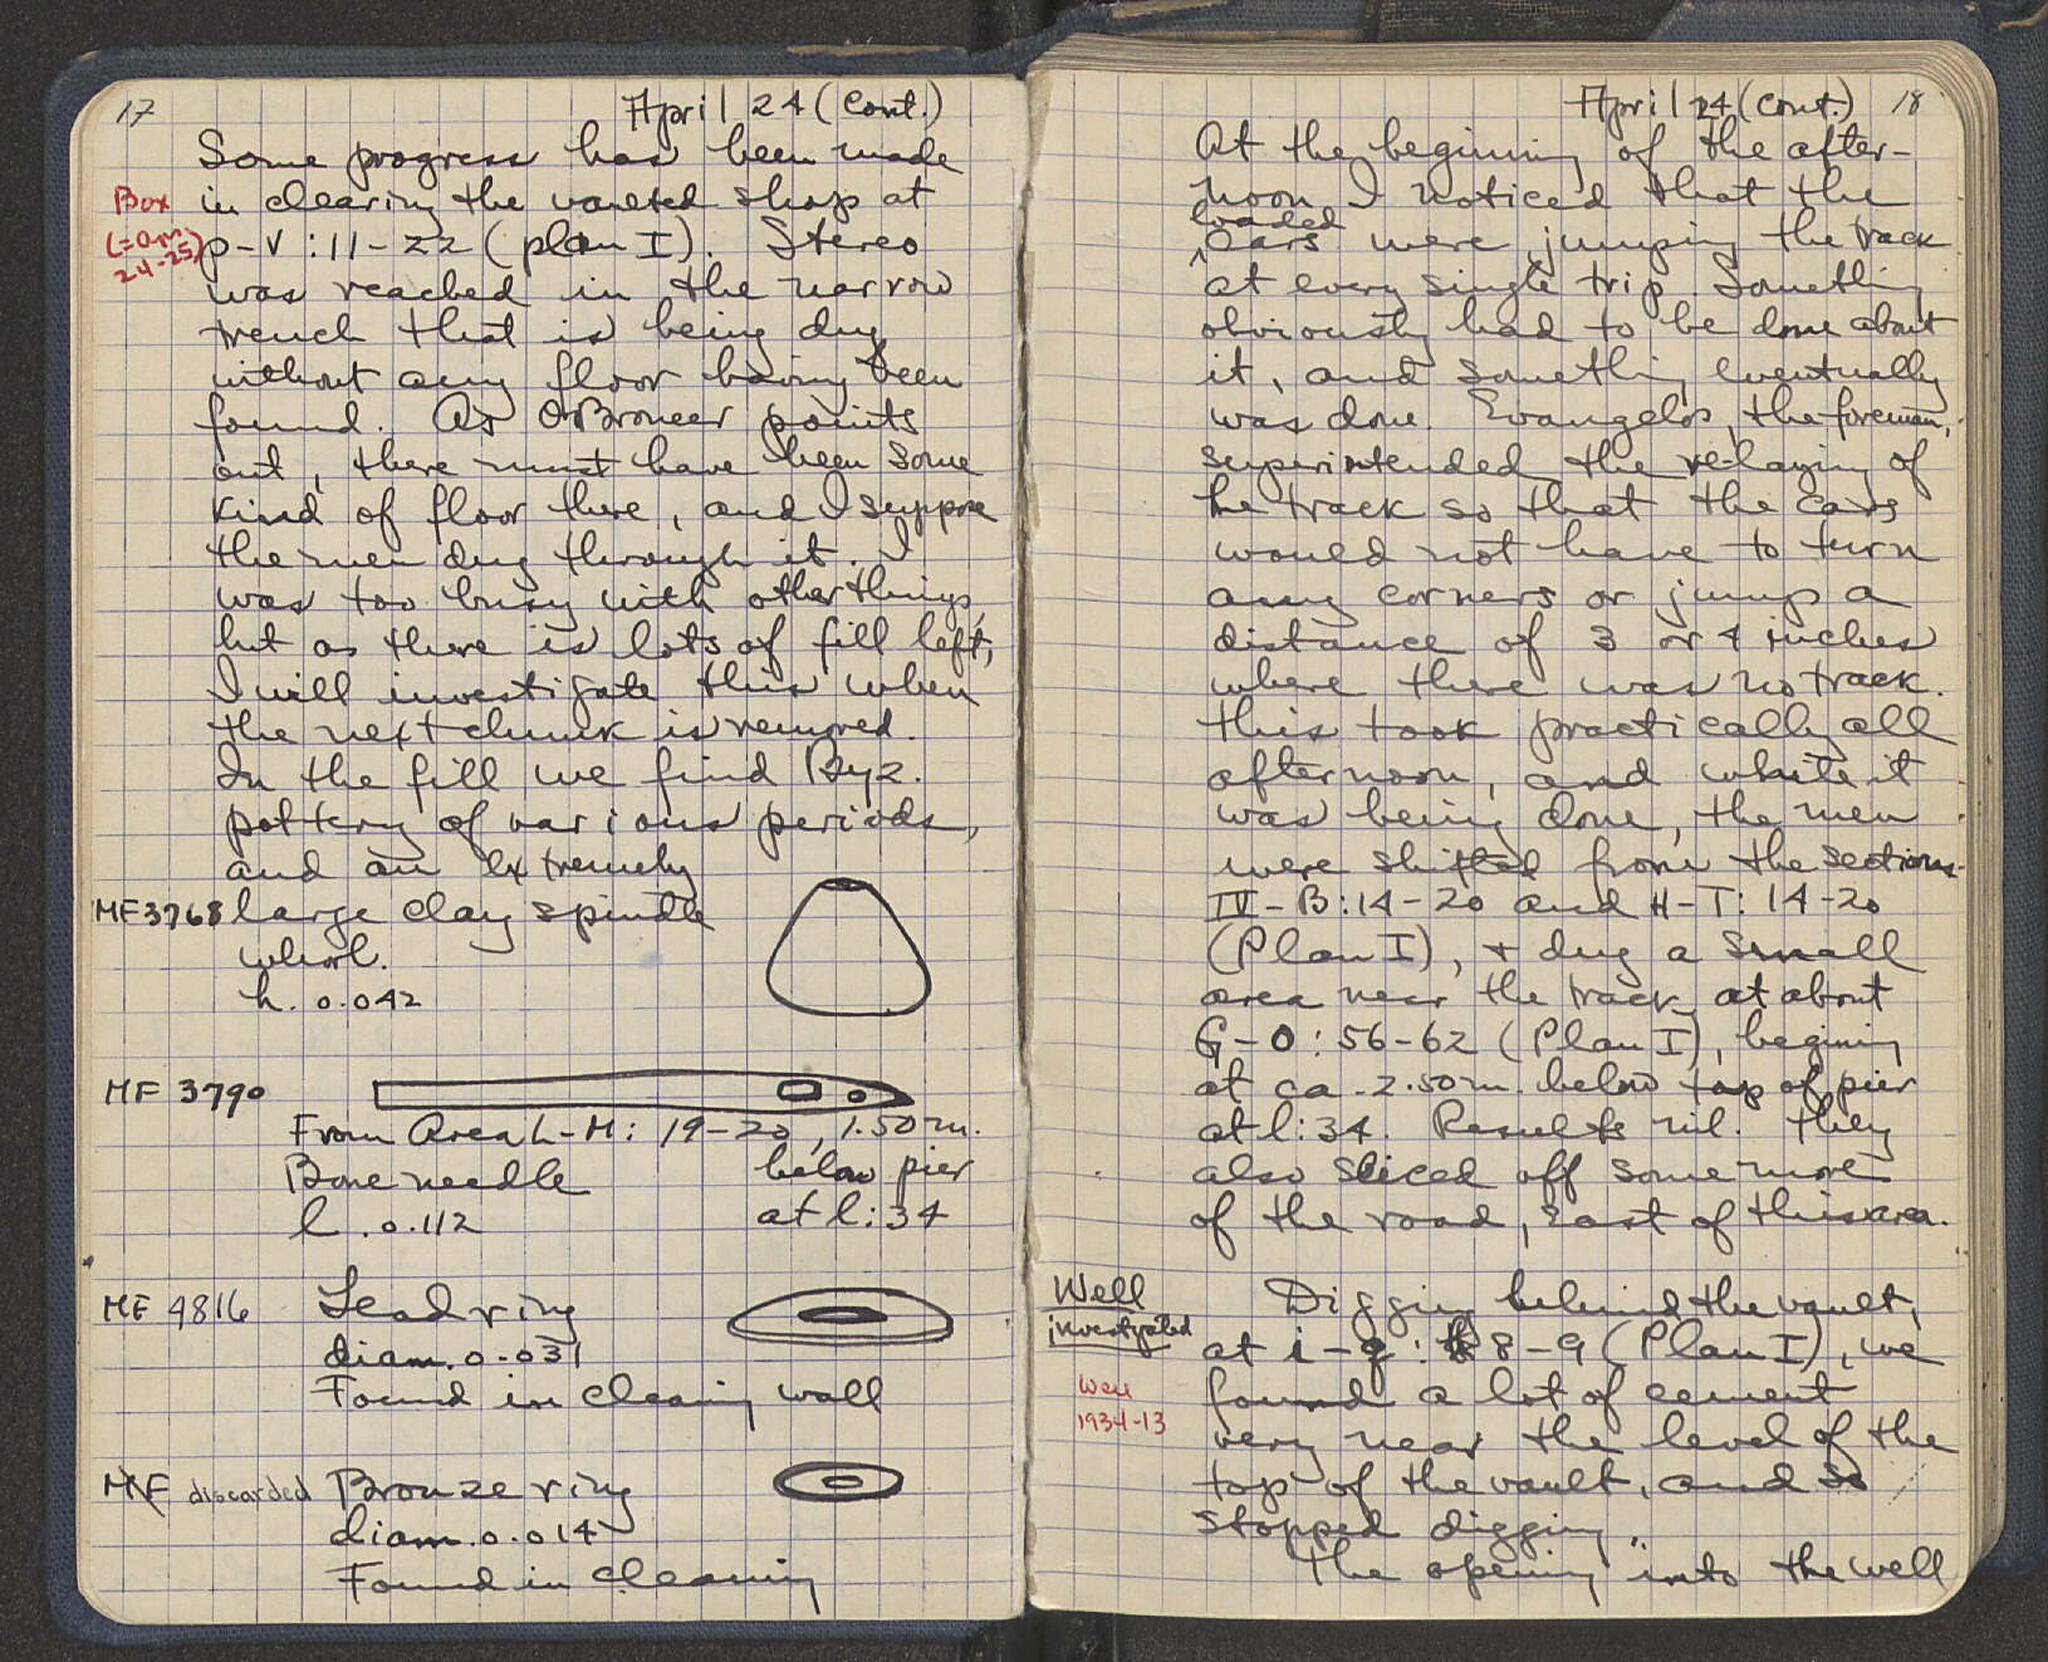 17
April 24 (cont.)
Some progress has been made
in clearing the vaulted shop at
Box
p-V:11-22 (plan I). Stereo
24-25)
was reached in the narrow
trench that is being dug
without any floor having been
found. As OBroneer points
out, there must have been some
kind of floor there, and I suppose
the men dug through it. I
was too busy with other things,
but as there is lots of fill left,
I will investigate this when
the next chunk is removed.
In the fill we find Byz.
pottery of various periods,
and an extremely
MF3768 large clay spindle
whorl.
h. 0.042
MF 3790
From Area L-M: 19-20, 1.50 m.
Bone needle below pier
l. 0.112 at l:34
MF 4816 Lead ring
diam. 0.031
Found in cleaning wall
MF discarded Bronze ring
diam. 0.014
Found in cleaning
April 24 (cont.) 18
At the begining of the after-
noon I noticed that the
loaded
cars were jumping the track
at every single trip. Something
obviously had to be done about
it, and something eventually
was done. Evangelos, the foreman,
superintended the re-laying of
the track so that the cars
would not have to turn
any corners or jump a
distance of 3 or 4 inches
where there was no track.
This took practically all
afternoon, and while it
was being done, the men
were shifted from the sections
IV-B:14-20 and H-T:14-20
(Plan I), + dug a small
area near the track at about
G-O:56-62 (Plan I), begining
at ca. 2.50 m. below top of pier
at l:34. Results nil. They
also sliced off some more
of the road, East of this area.
Well
investigated
Digging behind the vault,
at i-q: 8-9 (Plan I), we
Well
1934-13
found a lot of cement
very near the level of the
top of the vault, and so
stopped digging.
The opening into the well